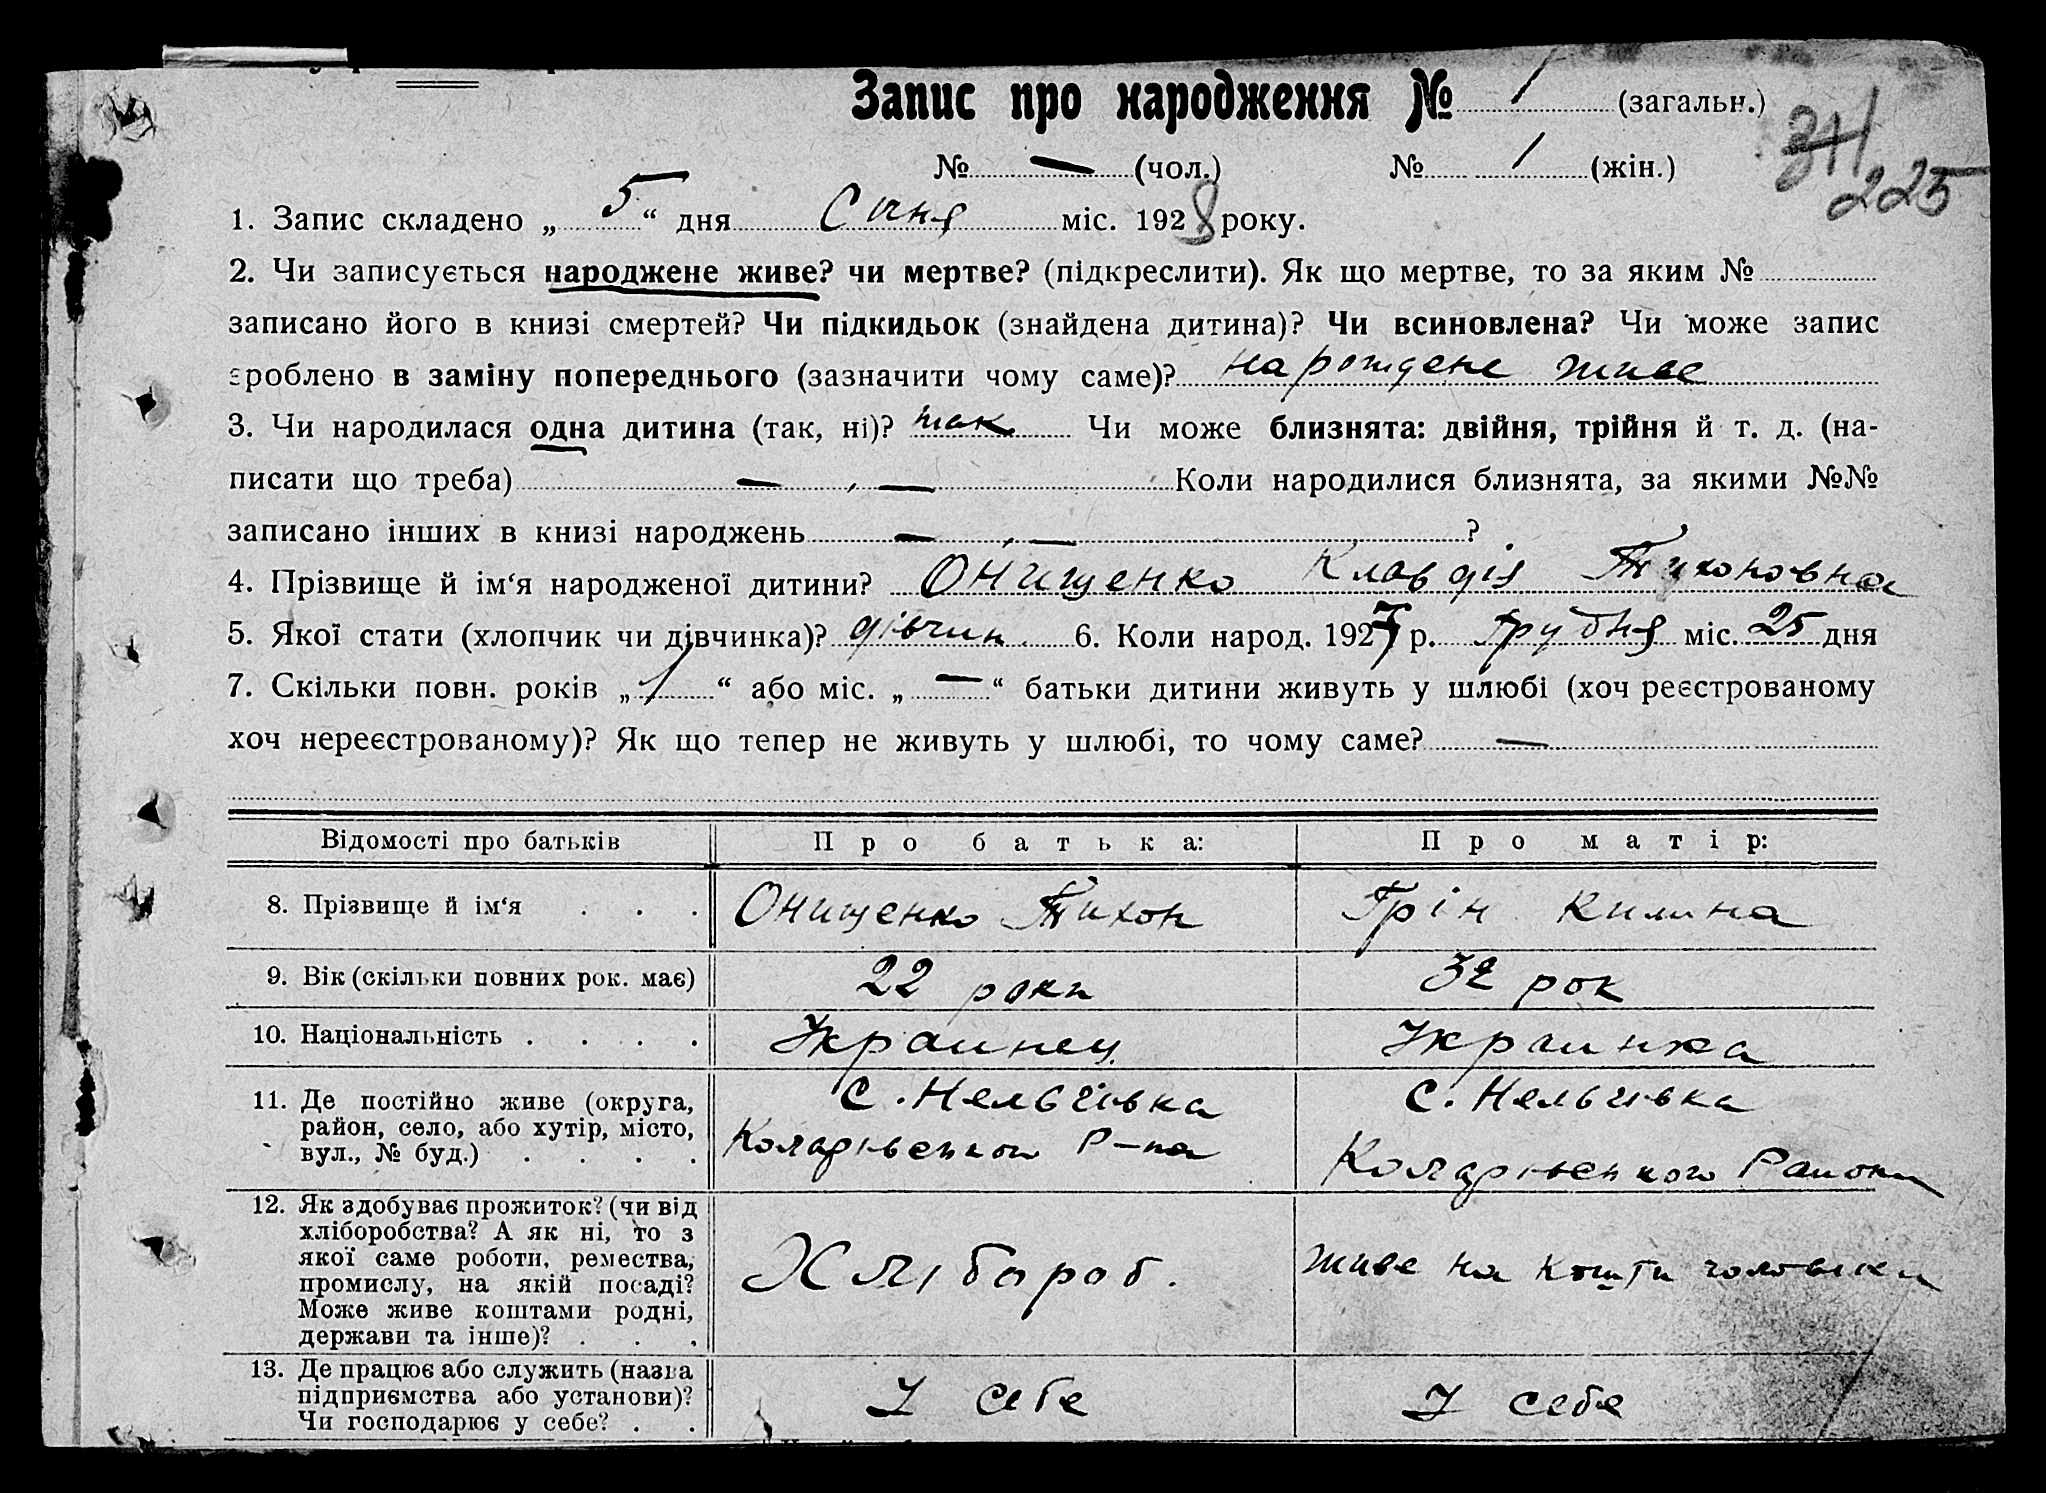 Запис про народження № 1 (загальн.)
311
225
№ — (чол.) № 1 (жін.)
1. Запис складено „ 5 “ дня Січня міс. 1928 року.
2. Чи записується народжене живе? чи мертве? (підкреслити). Як що мертве, то за яким №
записано його в книзі смертей? Чи підкидьок (знайдена дитина)? Чи всиновлена? Чи може запис
зроблено в заміну попереднього (зазначити чому саме)? народжене живе
3. Чи народилася одна дитина (так, ні)? так Чи може близнята: двійня, трійня й т. д. (на-
писати що треба) — , — Коли народилися близнята, за якими №№
записано інших в книзі народжень — , — ?
4. Прізвище й ім‘я народженої дитини? Онищенко Клавдія Тихоновна
5. Якої стати (хлопчик чи дівчинка)? дівчин. 6. Коли народ. 1927 р. Грудня міс. 25 дня
7. Скільки повн. років „ 1 “ або міс. „ — “ батьки дитини живуть у шлюбі (хоч реєстрованому
хоч нереєстрованому)? Як що тепер не живуть у шлюбі, то чому саме? —
Відомості про батьків Про батька: Про матір:
8. Прізвище й ім‘я . . . Онищенко Тихон Грін Килина
9. Вік (скільки повних рок. має) 22 роки 32 рок
10. Національність . . . . Украинец Украинка
11. Де постійно живе (округа,
район, село, або хутір, місто,
вул., № буд.) . . . .
С. Нельгівка
Р-на
С. Нельгивка
12. Як здобуває прожиток? (чи від
хліборобства? А як ні, то з
якої саме роботи, ремества,
промислу, на якій посаді?
Може живе коштами родні,
держави та інше)? . . .
Хлібороб.
живе на кошти чоловіка
13. Де працює або служить (назва
підприємства або установи)?
Чи господарює у себе? . .
У себе
У себе